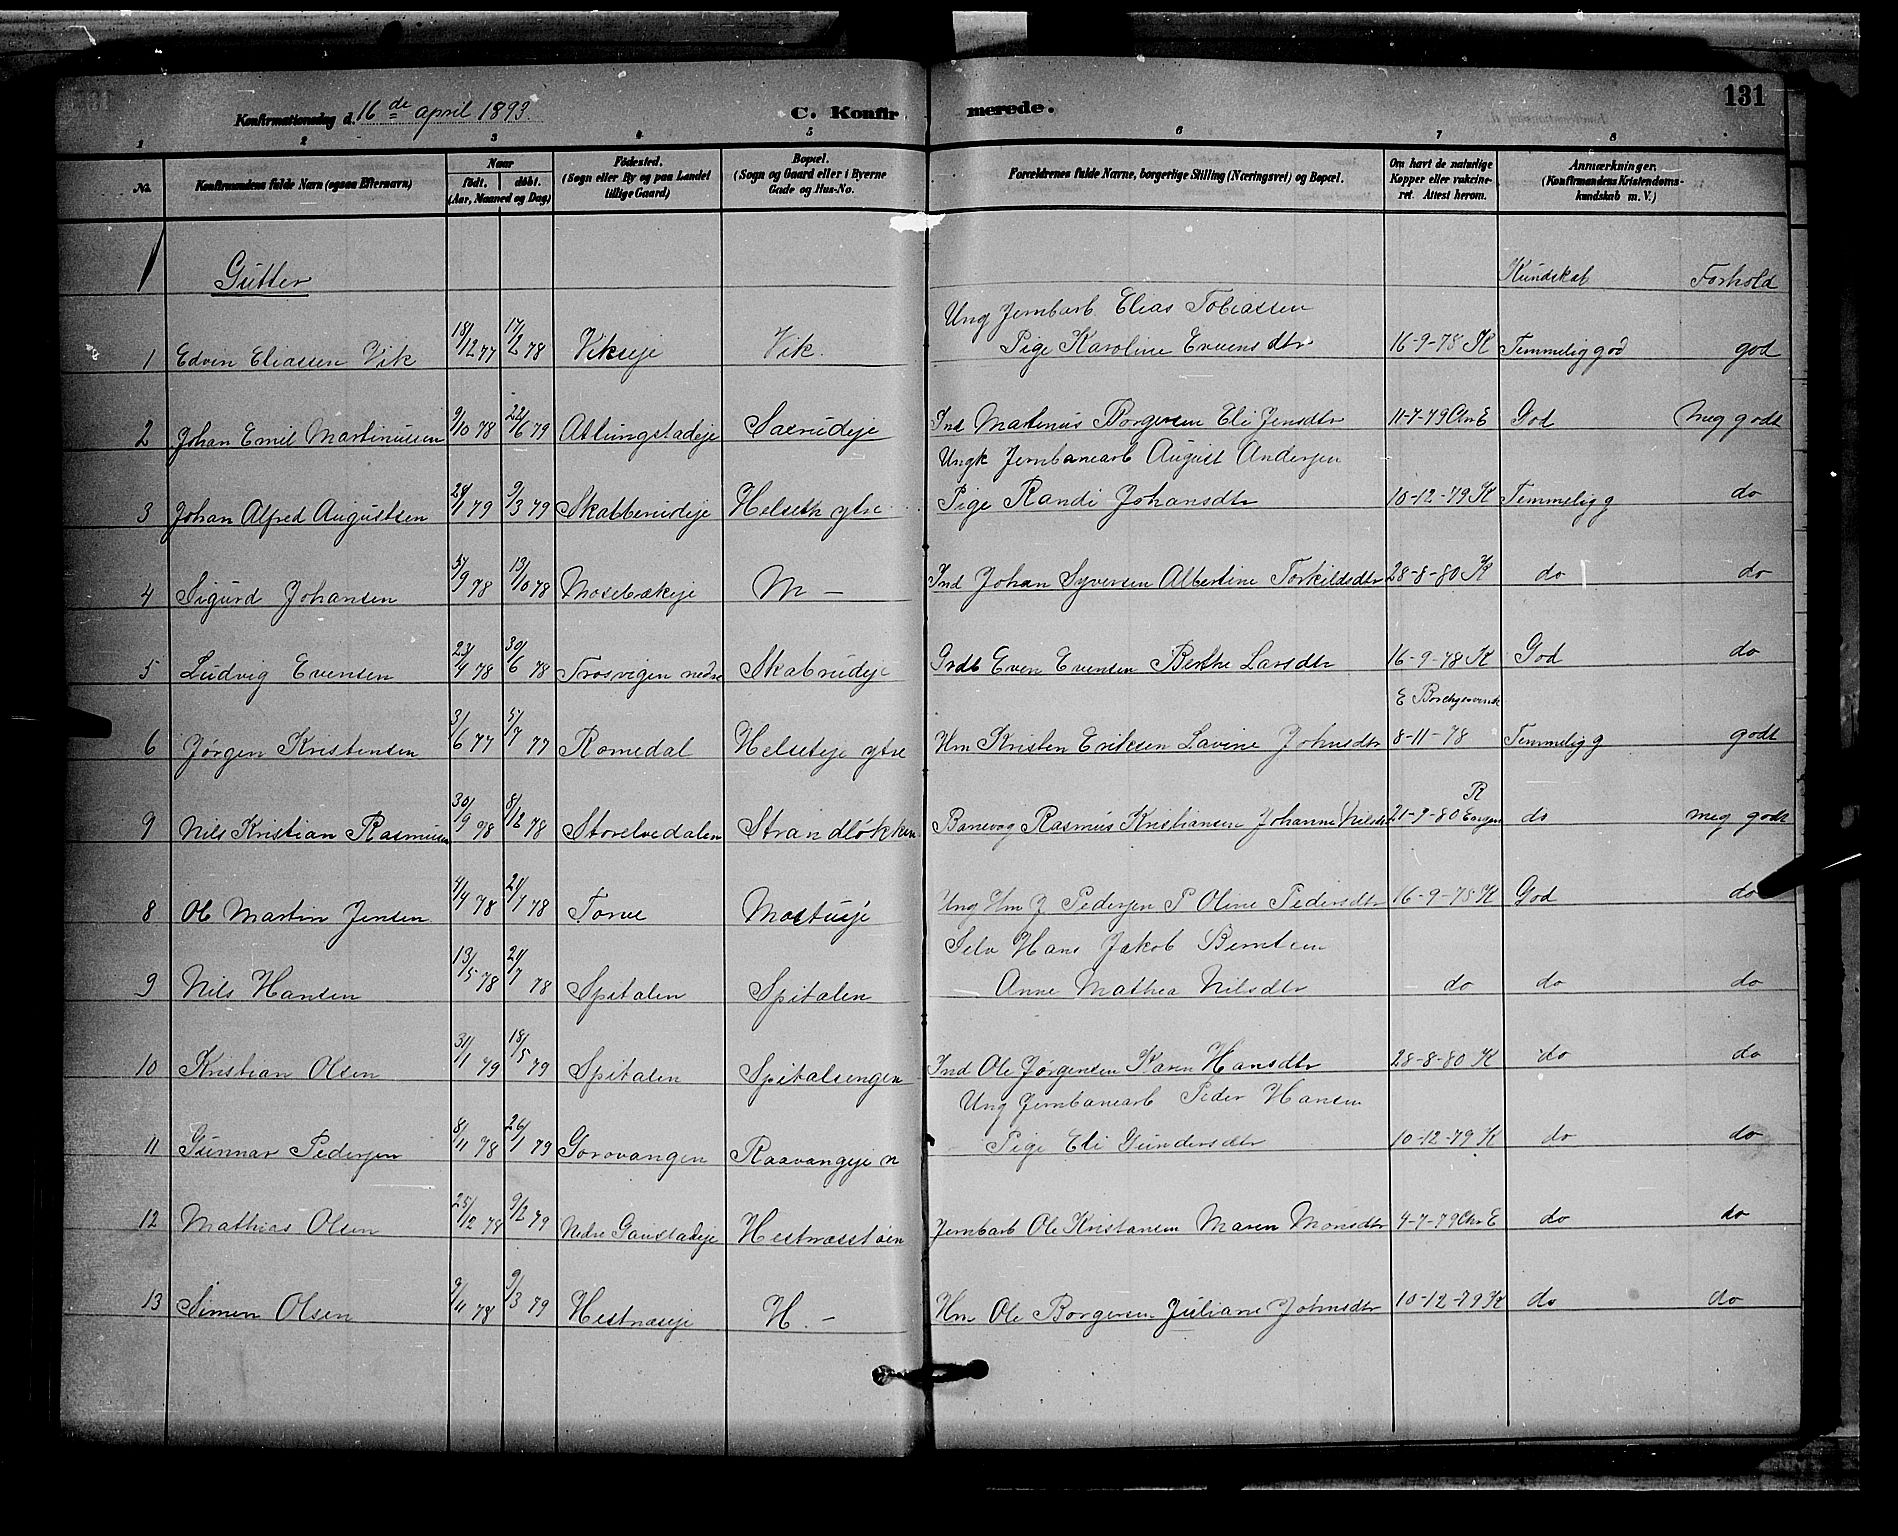 131
Konfirmationsdag d. 16de april 1893.
C. Konfirmerede.
1 2 3 4 5 6 7 8
No. Konfirmandens fulde Navn (ogsaa Efternavn) Naar født. døbt. (Aar, Maaned og Dag) Fødested. (Sogn eller By og paa Landet tillige Gaard) Bopæl. (Sogn og Gaard eller i Byerne Gade og Hus-No. Forældrenes fulde Navne, borgerlige Stilling (Næringsvei) og Bopæl. Om havt de naturlige Kopper eller vakcineret. Attest herom. Anmærkninger. (Konfirmandens Kristendomskundskab m. V.)
Gutter Kundskab Forhold
Ung Jernbarb Elias Tobiassen
1 Edvin Eliassen Vik 18/12 77 17/2 78 Vikseje Vik. Pige Karoline Evensdtr 16-9-78 K Temmelig god god
2 Johan Emil Martinussen 9/10 78 22/6 79 Atlungstadeje Saxrudeje Ind Martinus Borgersen Eli Jensdtr 11-7-79 Chr E God meg godt
Ungk Jernbanearb August Andersen
3 Johan Alfred Augustsen 24/1 79 9/3 79 Skabberudeje Helseth ytre Pige Randi Johansdtr 10-12-79 K Temmelig g do
4 Sigurd Johansen 5/9 78 13/10 78 Mosebækeje M – Ind Johan Syversen Albertine Torkildsdtr 28-8-80 K do do
5 Ludvig Evensen 23/4 78 30/6 78 Trosvigen nedre Skabrudeje Grdb Even Evensen Berthe Larsdtr 16-9-78 K God do
6 Jørgen Kristensen 3/6 77 5/7 77 Romedal Helseteje ytre Hm Kristen Eriksen Lavine Johnsdtr 8-11-78 Temmelig g godt
9 Nils Kristian Rasmussen 30/9 78 8/12 78 Storelvedalen Strandløkken Banevog Rasmus Kristiansen Johanne Nilsdtr 21-9-80 do meg godt
8 Ol Martin Jensen 4/4 78 24/1 78 Torve Mostueje Ung Hm J Pedersen P Oline Pedersdtr 16-9-78 K God do
Selv Hans Jakob Berntsen
9 Nils Hansen 13/5 78 24/7 78 Spitalen Spitalen Anne Mathea Nilsdtr do do do
10 Kristian Olsen 31/1 79 18/5 79 Spitalen Spitalsengen Ind Ole Jørgensen Karen Hansdtr 28-8-80 K do do
Ung Jernbanearb Peder Hansen
11 Gunnar Pedersen 8/11 78 26/1 79 Gorovangen Raavangeje n Pige Eli Gundersdtr 10-12-79 K do do
12 Mathias Olsen 25/12 78 9/2 79 Nedre Gaustadeje Hestnæsstøen Jernbarb Ole Kristansen Maren Monsdtr 4-7-79 Chr E do do
13 Simen Olsen 9/11 78 9/3 79 Hestnæseje H. – Hm Ole Borgersen Juliane Johnsdtr 10-12-79 K do do